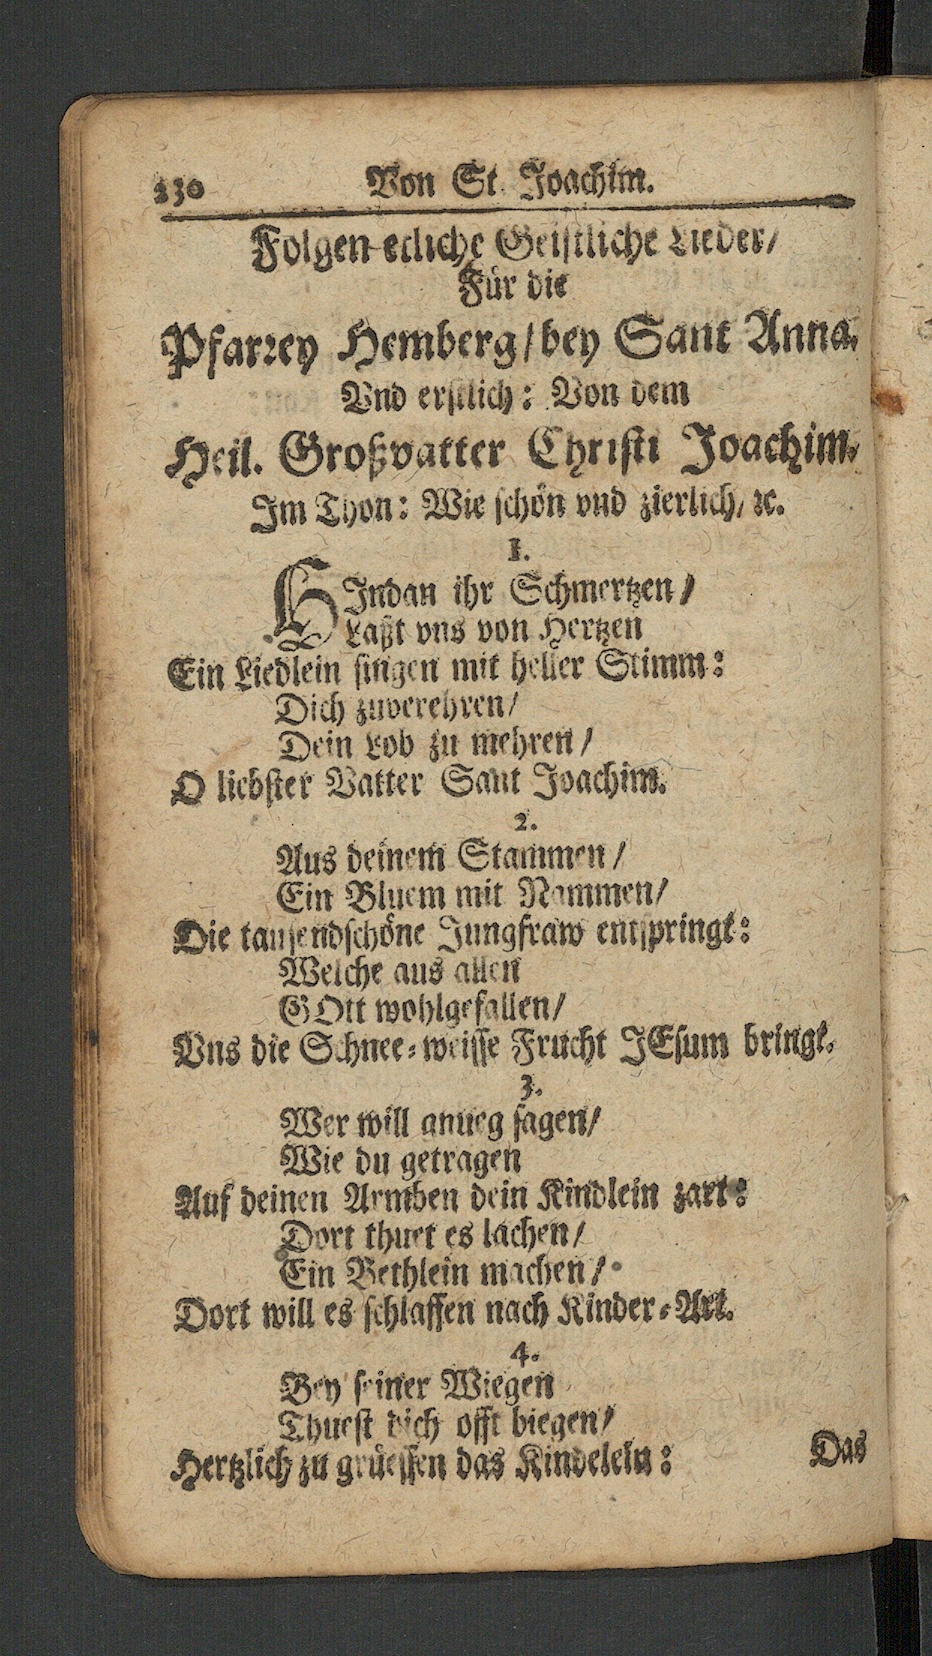 230 Von St. Joachim.
Folgen etliche Geistliche Lieder/
Für die
Pfarrey Hemberg/ bey Sant Anna.
Vnd erstlich: Von dem
Heil. Großvatter Christi Joachim.
Im Thon: Wie schön vnd zierlich/ ꝛc.
1.
HIndan ihr Schmertzen/
Laßt vns von Hertzen
Ein Liedlein singen mit heller Stimm:
Dich zuverehren/
Dein Lob zu mehren/
O liebster Vatter Sant Joachim.
2.
Aus deinem Stammen/
Ein Bluem mit Nammen/
Die tausendschöne Jungfraw entspringt:
Welche aus allen
GOtt wohlgefallen/
Vns die Schnee-weisse Frucht JEsum bringt.
3.
Wer will anueg sagen/
Wie du getragen
Auf deinen Armben dein Kindlein zart:
Dort thuet es lachen/
Ein Bethlein machen/
Dort will es schlaffen nach Kinder-Art.
4.
Bey seiner Wiegen
Thuest dich offt biegen/
Hertzlich zu grüessen das Kindelein:
Das